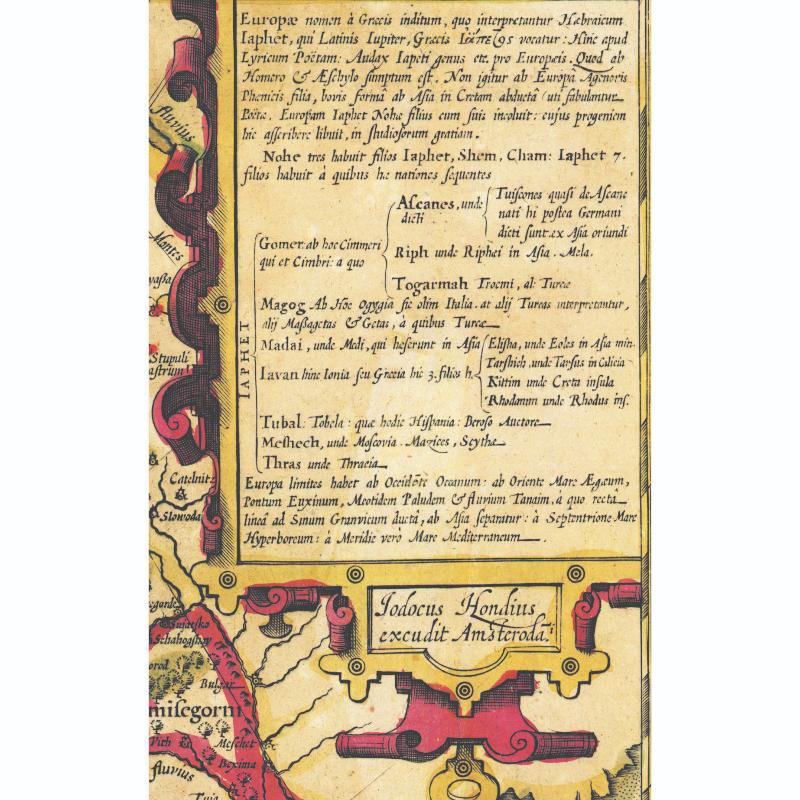 Europæ nomen à Græcis inditum, quo interpretantur Hæbraicum
Iaphet, qui Latinis Iupiter, Græcis vocatur: Hinc apud
Lyricum Poëtam: Audax Iapeti genus etc. pro Europæis. Quod ab
Homero & Æschylo sumptum est. Non igitur ab Europa Agenoris
Phenicis filia, bovis formâ ab Asia in Cretam abducta (uti fabulantur
Poëtæ, Europam Iaphet Nohæ filius cum suis incoluit: cujus progeniem
hic asscribere libuit, in studiosorum gratiam.
Nohe tres habuit filios Iaphet, Shem, Cham: Iaphet 7.
filios habuit à quibus hæ nationes sequentes
IAPHET
Gomer: ab hoc Cimmeri
qui et Cimbri: a quo
Ascanes, unde
dicti
Tuiscones quasi de Ascane
nati hi postea Germani
dicti sunt. ex Asia oriundi
Riph unde Riphei in Asia. Mela.
Togarmah Trocmi, al: Turcæ
Magog Ab Hoc Ogygia sic olim Italia. at alij Turcas interpretantur,
alij Maßagetas & Getas, à quibus Turcæ
Madai, unde Medi, qui heserunt in Asia
Iavan hinc Ionia seu Græcia hic 3. filios h.
Elisha, unde Eoles in Asia min.
Tarshich, unde Tarsus in Cilicia
Kittim unde Creta insula
Rhodanum unde Rhodus ins.
Tubal: Tobela: quæ hodie Hispania: Beroso Auctore
Meshech, unde Moscovia. Mazices, Scythæ
Thras unde Thracia
Europa limites habet ab Occidẽte Oceanum: ab Oriente Mare Ægæum,
Pontum Euxinum, Meotidem Paludem & fluvium Tanaim, à quo recta
lineâ ad Sinum Granvicum ductâ, ab Asia separatur: à Septentrione Mare
Hyperboreum: à Meridie verò Mare Mediterraneum
Jodocus Hondius
excudit Amsteroda.
fluvius
Montes
Stupuli
Catelnitz
Slowoda
Sujatsko
Schahogshoy
Bulgar
Meschet
Bexima
fluvius